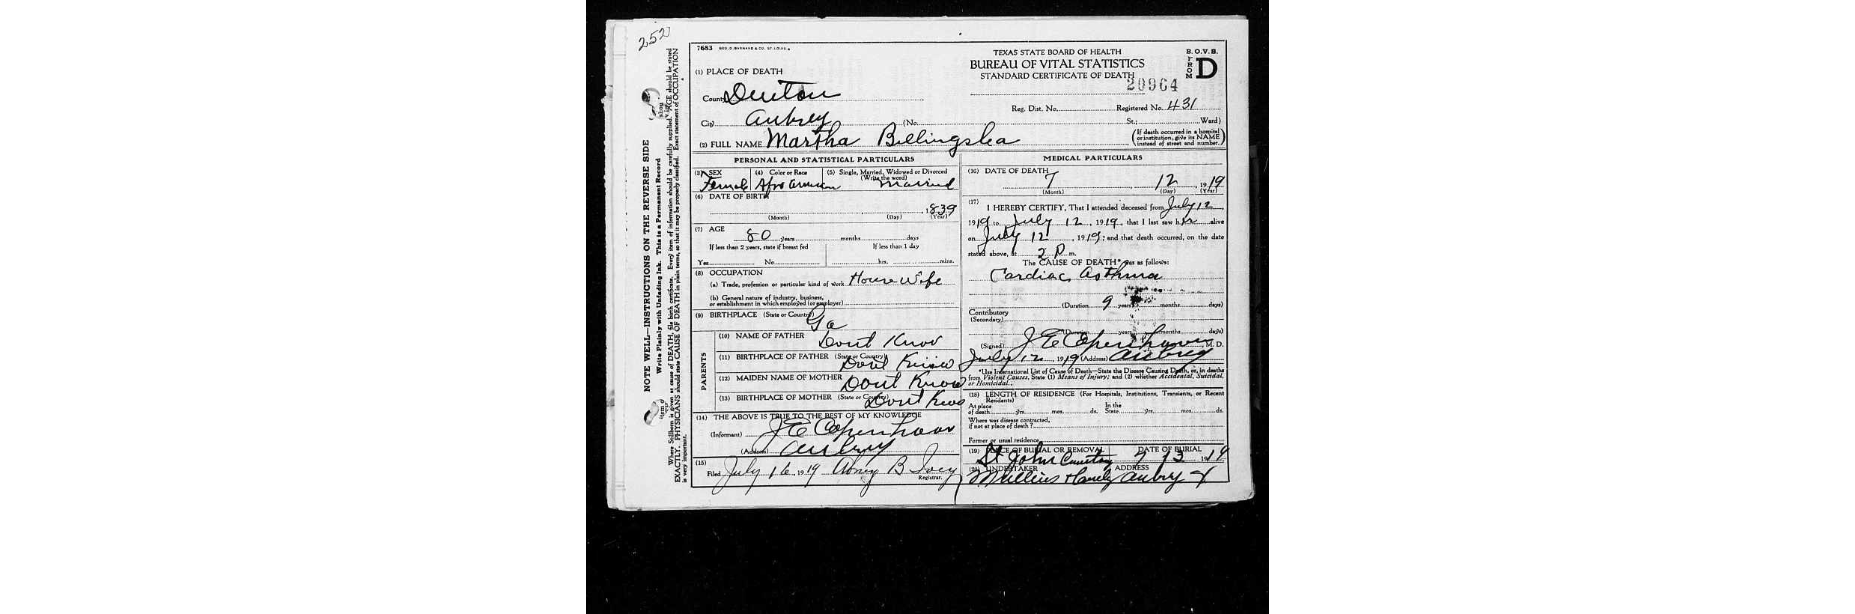 252
7683
TEXAS STATE BOARD OF HEALTH
BUREAU OF VITAL STATISTICS
STANDARD CERTIFICATE OF DEATH
20964
B.O.V.S.
FROM D
(1) PLACE OF DEATH
County Denton
Reg. Dist. No. Registered No. 431
City Aubrey (No. St.; Ward)
(If death occurred in a hospital or institution, give its NAME instead of street and number.)
(2) FULL NAME Martha Billingslea
PERSONAL AND STATISTICAL PARTICULARS
(3) SEX
Female
(4) Color or Race
(5) Single, Married, Widowed or Divorced
(Write the word)
Married
(6) DATE OF BIRTH
1839
(Month) (Day) (Year)
(7) AGE
80 years months days
If less than 2 years, state if breast fed
If less than 1 day
Yes No hrs. mins.
(8) OCCUPATION
(a) Trade, profession or particular kind of work House Wife
(b) General nature of industry, business, or establishment in which employed (or employer)
(9) BIRTHPLACE (State or Country)
Ga
PARENTS
(10) NAME OF FATHER
Dont Know
(11) BIRTHPLACE OF FATHER (State or Country)
Dont Know
(12) MAIDEN NAME OF MOTHER
Dont Know
(13) BIRTHPLACE OF MOTHER (State or Country)
Dont Know
(14) THE ABOVE IS TRUE TO THE BEST OF MY KNOWLEDGE
(Informant) J E Copenhaver
(Address) Aubrey
(15)
Filed July 16 1919
Registrar.
MEDICAL PARTICULARS
(16) DATE OF DEATH
7 12 1919
(Month) (Day) (Year)
(17) I HEREBY CERTIFY, That I attended deceased from July 12
1919 to July 12 1919, that I last saw her alive
on July 12, 1919; and that death occurred, on the date
stated above, at 2 P. m.
The CAUSE OF DEATH* was as follows:
Cardiac Asthma
(Duration 9 years months days)
Contributory
(Secondary)
(Duration years months days)
(Signed) J E Copenhaver M. D.
July 12, 1919 (Address) Aubrey
*Use International List of Cause of Death—State the Disease Causing Death, or, in deaths
from Violent Causes, State (1) Means of Injury; and (2) whether Accidental, Suicidal,
or Homicidal.
(18) LENGTH OF RESIDENCE (For Hospitals, Institutions, Transients, or Recent Residents)
At place of death yrs. mos. ds. In the State yrs. mos. ds.
Where was disease contracted, if not at place of death?
Former or usual residence
(19) PLACE OF BURIAL OR REMOVAL DATE OF BURIAL
St John Cemetery 7 13 1919
(20) UNDERTAKER ADDRESS
Aubrey
NOTE WELL—INSTRUCTIONS ON THE REVERSE SIDE
Write Plainly with Unfading Ink. This is a Permanent Record.